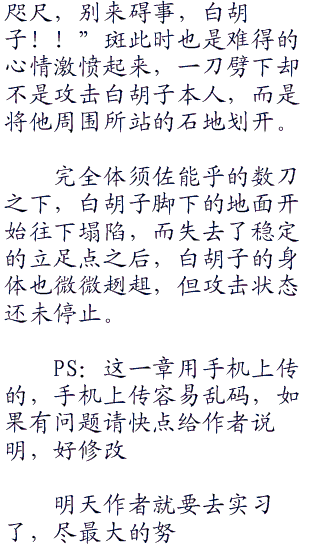 咫尺，别来碍事，白胡
子！！”斑此时也是难得的
心情激愤起来，一刀劈下却
不是攻击白胡子本人，而是
将他周围所站的石地划开。
完全体须佐能乎的数刀
之下，白胡子脚下的地面开
始往下塌陷，而失去了稳定
的立足点之后，白胡子的身
体也微微趔趄，但攻击状态
还未停止。
PS：这一章用手机上传
的，手机上传容易乱码，如
果有问题请快点给作者说
明，好修改
明天作者就要去实习
了，尽最大的努